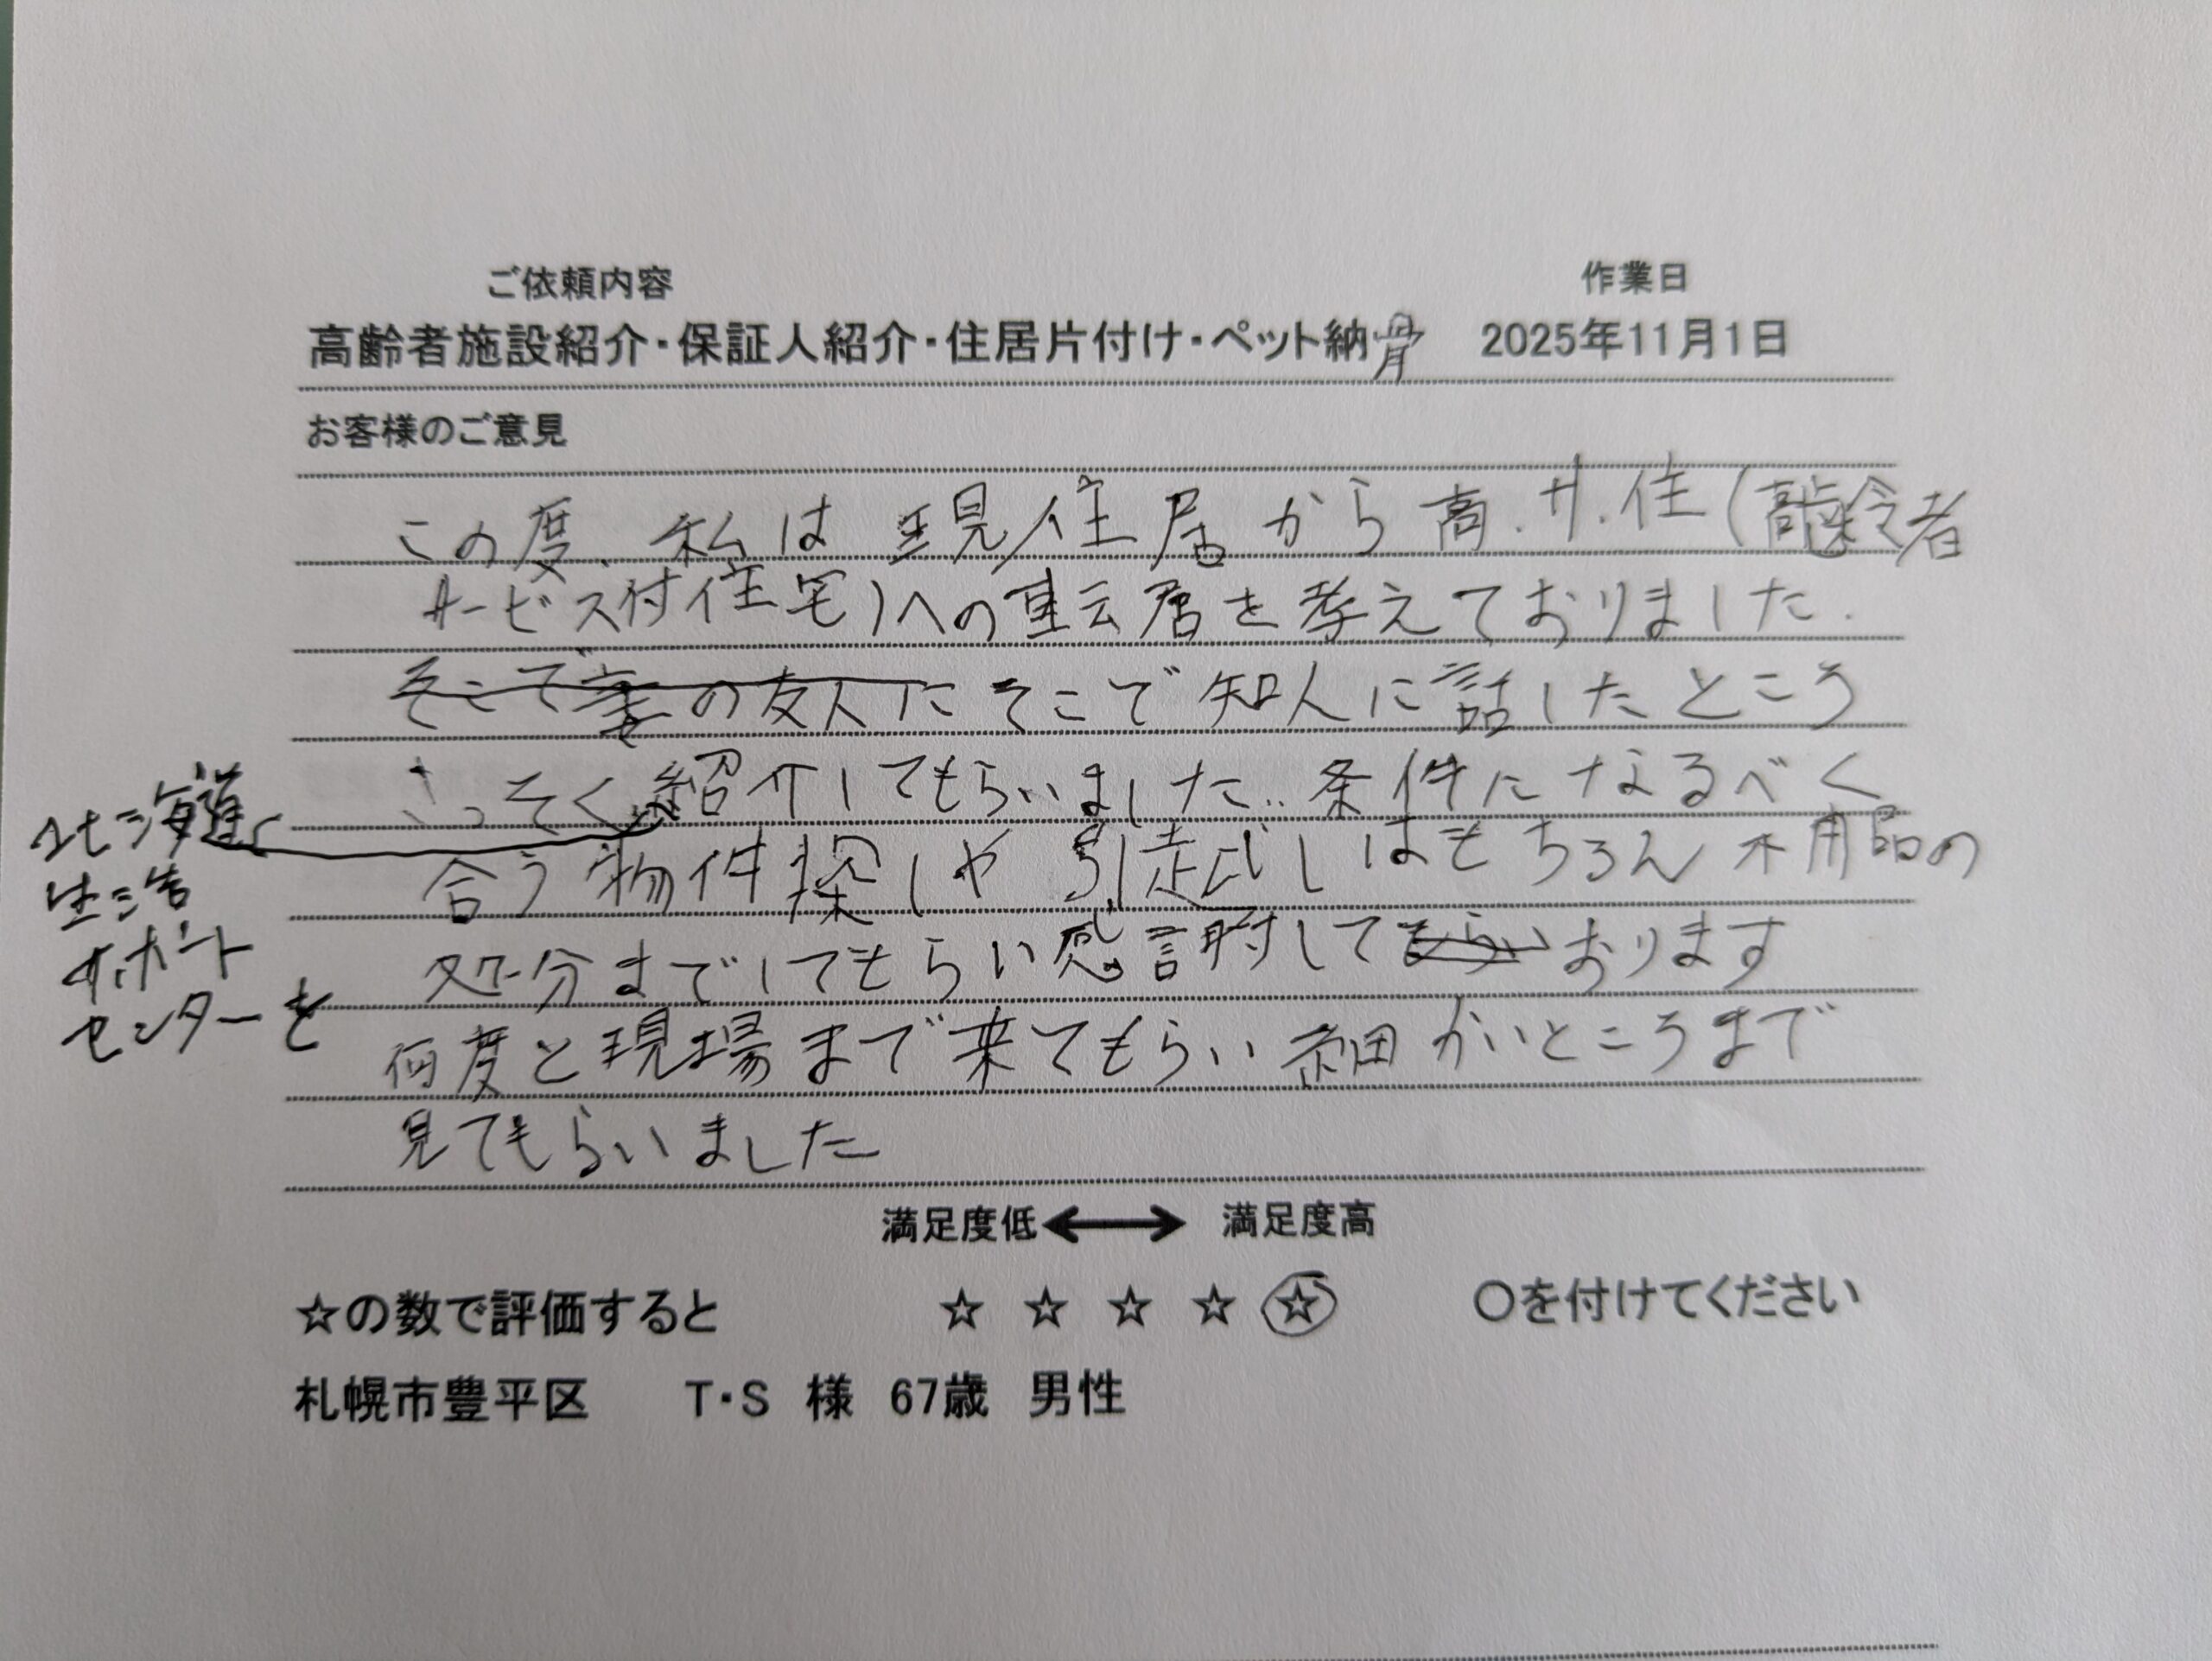 ご依頼内容 作業日
高齢者施設紹介・保証人紹介・住居片付け・ペット納骨 2025年11月1日
お客様のご意見
この度、私は現住居から高.サ.住(高齢者
サービス付住宅)への転居を考えておりました.
そこで妻の友人にそこで知人に話したところ
さっそく紹介してもらいました..条件になるべく
北海道
生活
サポート
センターを
合う物件探しや引越ししはもちろん不用品の
処分まてしてもらい感謝してもらいおります
何度と現場まで来てもらい細かいところまで
見てもらいました
満足度低 満足度高
☆の数で評価すると ☆ ☆ ☆ ☆ ☆ ○を付けてください
札幌市豊平区 T・S 様 67歳 男性